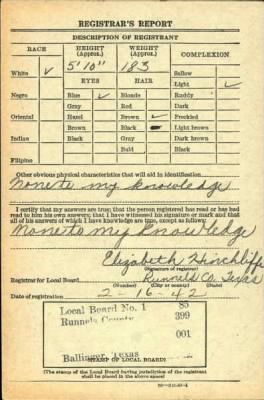 REGISTRAR'S REPORT
DESCRIPTION OF REGISTRANT
RACE HEIGHT (Approx.) WEIGHT (Approx.) COMPLEXION
5' 10" 183
White ✓ Sallow
EYES HAIR Light ✓
Negro Blue ✓ Blonde Ruddy
Gray Red Dark
Oriental Hazel Brown ✓ Freckled
Brown Black Light brown
Indian Black Gray Dark brown
Bald Black
Filipino
Other obvious physical characteristics that will aid in identification
None to my knowledge
I certify that my answers are true; that the person registered has read or has had
read to him his own answers; that I have witnessed his signature or mark and that
all of his answers of which I have knowledge are true, except as follows:
None to my knowledge
Elizabeth Hinchliffe
(Signature of registrar)
Registrar for Local Board Runnels Co. Texas
(Number) (City or county) (State)
Date of registration 2-16-42
Local Board No. 1 85
Runnels County 399
001
Ballinger, Texas
(STAMP OF LOCAL BOARD)
(The stamp of the Local Board having jurisdiction of the registrant
shall be placed in the above space)